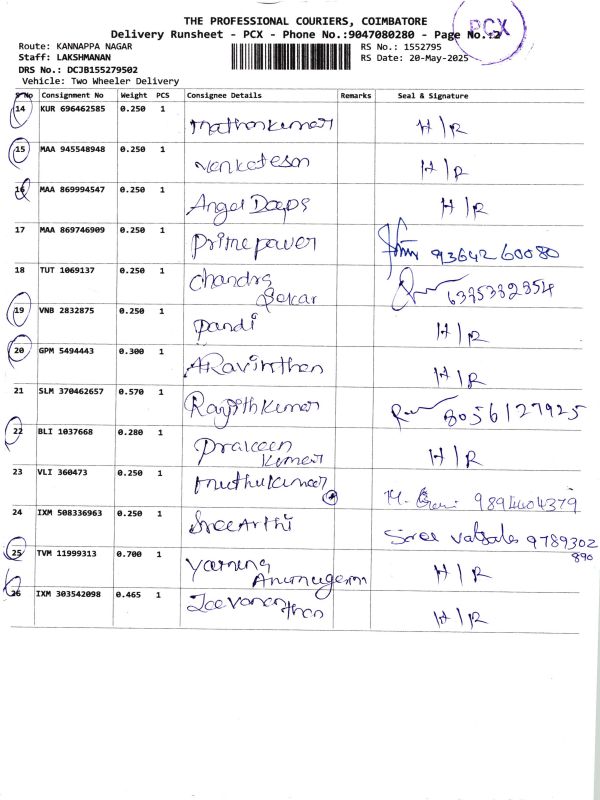 THE PROFESSIONAL COURIERS, COIMBATORE
Delivery Runsheet - PCX - Phone No.:9047080280 - Page No.:2
PCX
Route: KANNAPPA NAGAR RS No.: 1552795
Staff: LAKSHMANAN RS Date: 20-May-2025
DRS No.: DCJB155279502
Vehicle: Two Wheeler Delivery
S No Consignment No Weight PCS Consignee Details Remarks Seal & Signature
14 KUR 696462585 0.250 1 Mathankumar H/R
15 MAA 945548948 0.250 1 Venkatesan H/R
16 MAA 869994547 0.250 1 Angel Deeps H/R
17 MAA 869746909 0.250 1 Primepower 93642 60080
18 TUT 1069137 0.250 1 Chandra
Sekar 6375332354
19 VNB 2832875 0.250 1 Pandi H/R
20 GPM 5494443 0.300 1 ARavinthan H/R
21 SLM 370462657 0.570 1 Ranjithkumar 8056127925
22 BLI 1037668 0.280 1 Praveen
Kumar H/R
23 VLI 360473 0.250 1 Muthukumar 9894404379
24 IXM 508336963 0.250 1 Sree Arthi Sree Valsala 9789302
890
25 TVM 11999313 0.700 1 H/R
Arumugam
26 IXM 303542098 0.465 1 Jeevanan
than H/R